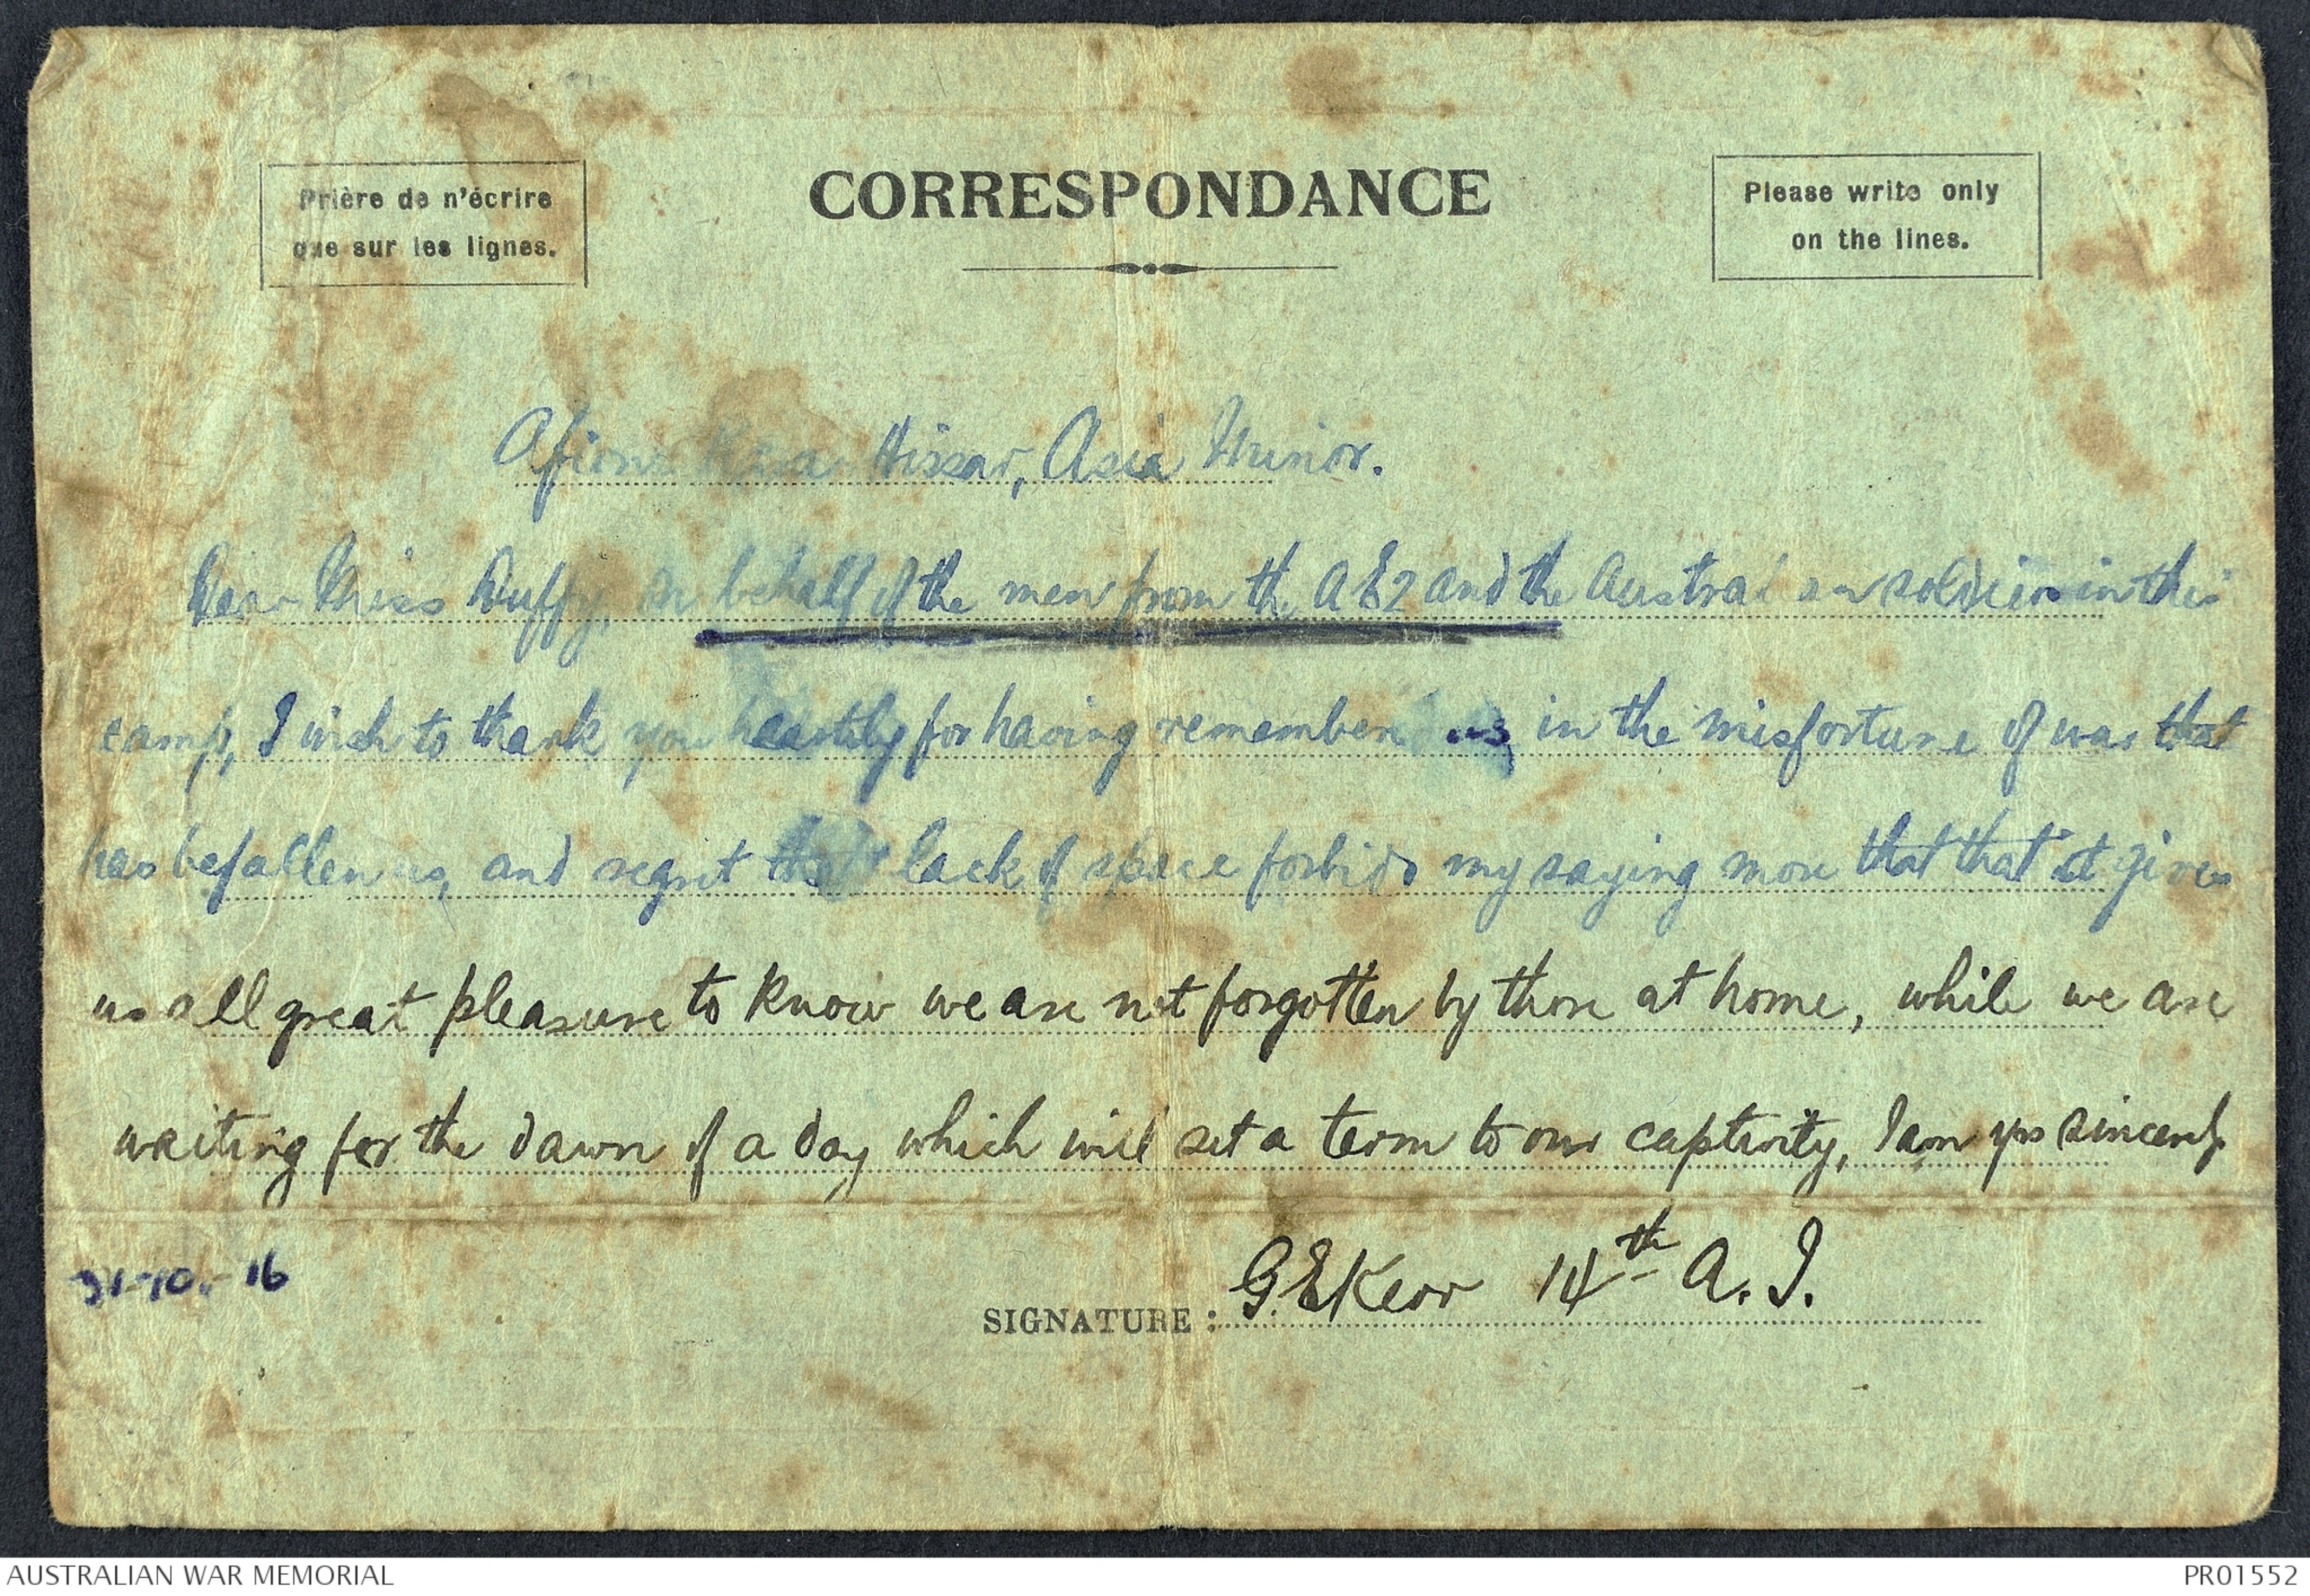 Prière de n'écrire
que sur les lignes.
CORRESPONDANCE
Please write only
on the lines.
Afion Kara Hissar, Asia Minor.
Dear Miss Duffy, On behalf of the men from the AE2 and the Australian soldiers in this
camp, I wish to thank you heartily for having remembered us in the misfortune of war that
has befallen us, and regret that lack of space forbids my saying more that that it gives
us all great pleasure to know we are not forgotten by those at home, while we are
waiting for the dawn of a day which will set a term to our captivity, I am yrs sincerely
31-10-16
SIGNATURE: G.E Kerr 14th A.I.
AUSTRALIAN WAR MEMORIAL
PR01552